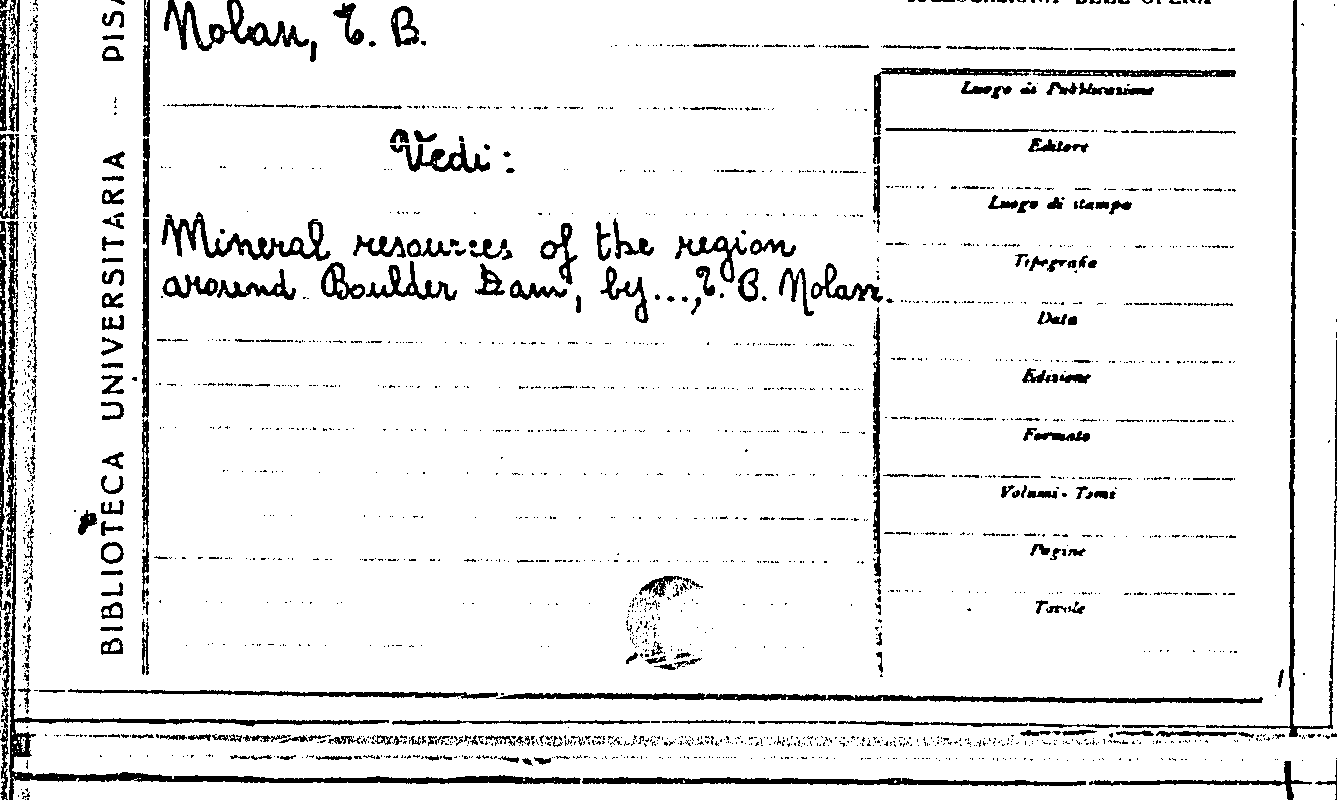 Nolan, T. B.
Vedi:
Mineral resources of the region
around Boulder Dam, by..., T. B. Nolan.
BIBLIOTECA UNIVERSITARIA - PISA
DELL'OPERA
Luogo di Pubblicazione
Editore
Luogo di stampa
Tipografia
Data
Edizione
Formato
Volumi - Tomi
Pagine
Tavole